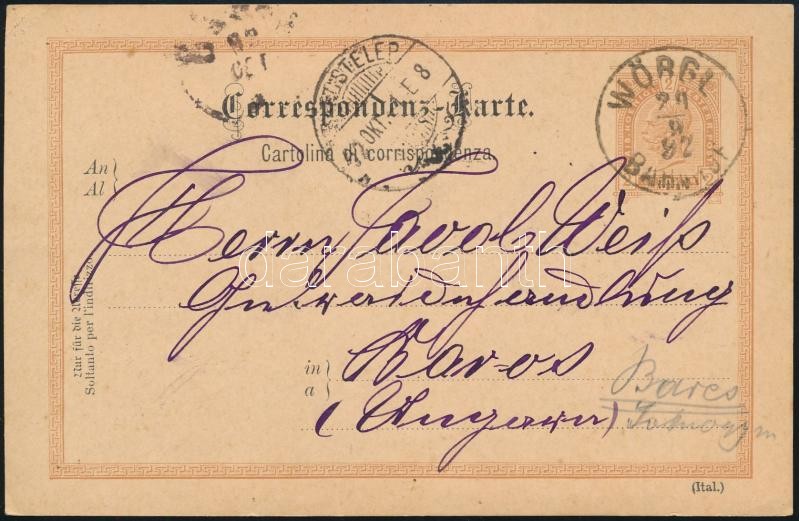 WÖRGL
29
9
92
BAHNHOF
OKT.
E 8
Correspondenz-Karte.
Cartolina di corrispondenza
An
Al
Herrn Jacob Weiß
Getreidehandlung
in
a
Baros
(Ungarn)
Barcs
Nur für die Adresse.
Soltanto per l'indirizzo.
darabanth
(Ital.)